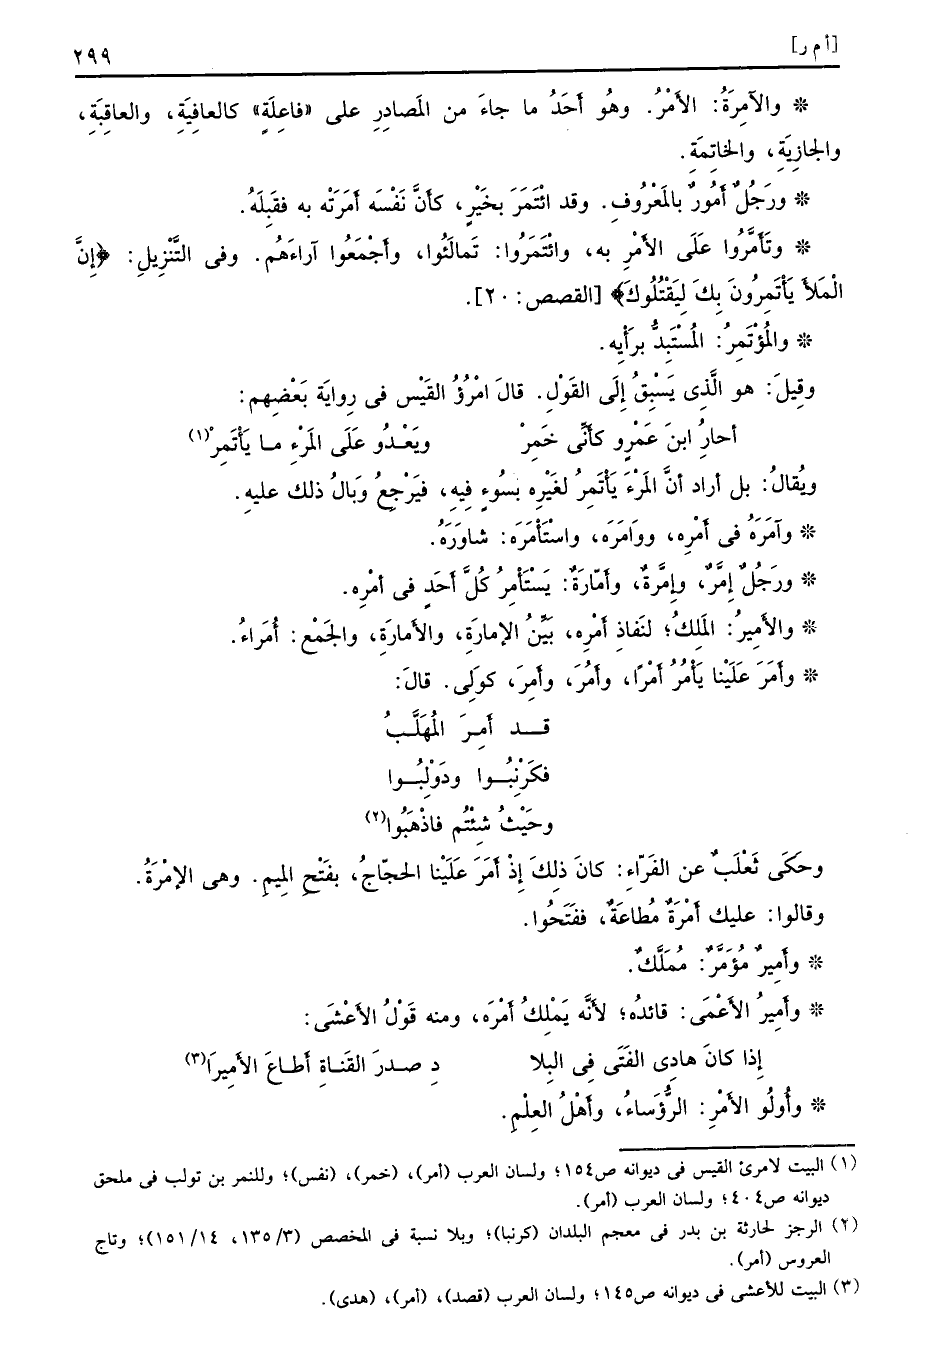 [أ م ر] ٢٩٩
* والآمِرَةُ: الأَمْرُ. وهُو أَحَدُ ما جاءَ من المَصادِرِ على «فاعِلَةٍ» كالعافِيَةِ، والعاقِبَةِ،
والجازِيَةِ، والخاتِمَةِ.
* ورَجُلٌ أَمُورٌ بالمَعْرُوفِ. وقد ائْتَمَرَ بخَيْرٍ، كأَنَّ نَفْسَه أَمَرَتْه به فقَبِلَهُ.
* وتَأَمَّرُوا عَلَى الأَمْرِ به، وائْتَمَرُوا: تَمالَئُوا، وأَجْمَعُوا آراءَهُم. وفى التَّنْزِيلِ: ﴿إِنَّ
الْمَلأَ يَأْتَمِرُونَ بِكَ لِيَقْتُلُوكَ﴾ [القصص: ٢٠].
* والمُؤْتَمِرُ: المُسْتَبِدُّ برَأْيِه.
وقِيلَ: هو الَّذِى يَسْبِقُ إِلَى القَوْلِ. قالَ امْرُؤُ القَيْسِ فى رِوايَة بَعْضِهم:
أحارُ ابنَ عَمْرِو كأَنِّى خَمِرْ ويَعْدُو عَلَى المَرْءِ ما يَأْتَمِرْ(١)
ويُقالُ: بل أراد أنَّ المَرْءَ يَأْتَمِرُ لغَيْرِه بسُوءٍ فِيهِ، فيَرْجِعُ وَبالُ ذلك عليهِ.
* وآمَرَهُ فى أَمْرِه، ووامَرَه، واستَأْمَرَه: شاوَرَهُ.
* ورَجُلٌ إِمَّرٌ، وإِمَّرَةٌ، وأَمّارَةٌ: يَسْتَأْمِرُ كُلَّ أَحَدٍ فى أمْرِه.
* والأَمِيرُ: المَلِكُ؛ لنَفاذِ أَمْرِه، بَيِّنُ الإمارَةِ، والأَمارَةِ، والجَمْع: أُمَراءُ.
* وأَمَرَ عَلَيْنا يَأْمُرُ أَمْرًا، وأَمُرَ، وأَمِرَ، كوَلِى. قالَ:
قـد أَمِـرَ المُهَلَّـبُ
فكَرْنِبُـوا ودَوْلِبُـوا
وحَيْثُ شِئْتُم فاذْهَبُوا(٢)
وحَكَى ثَعْلَبٌ عن الفَرّاءِ: كانَ ذلِكَ إِذْ أَمَرَ عَلَيْنا الحجّاجُ، بفَتْحِ المِيمِ. وهى الإمْرَةُ.
وقالوا: عليك أَمْرَةٌ مُطاعَةٌ، ففَتَحُوا.
* وأَمِيرٌ مُؤَمَّرٌ: مُمَلَّكٌ.
* وأَمِيرُ الأَعْمَى: قائدُه؛ لأنَّه يَمْلِكُ أَمْرَه، ومنه قَوْلُ الأَعْشَى:
إِذا كانَ هادِى الفَتَى فِى البِلا دِ صـدرَ القَناةِ أَطاعَ الأَمِيرَا(٣)
* وأُولُو الأَمْرِ: الرُّؤَساءُ، وأَهْلُ العِلْمِ.
(١) البيت لامرئ القيس فى ديوانه ص١٥٤؛ ولسان العرب (أمر)، (خمر)، (نفس)؛ وللنمر بن تولب فى ملحق
ديوانه ص٤٠٤؛ ولسان العرب (أمر).
(٢) الرجز لحارثة بن بدر فى معجم البلدان (كرنبا)؛ وبلا نسبة فى المخصص (٣/ ١٣٥، ١٤/ ١٥١)؛ وتاج
العروس (أمر).
(٣) البيت للأعشى فى ديوانه ص١٤٥؛ ولسان العرب (قصد)، (أمر)، (هدى).